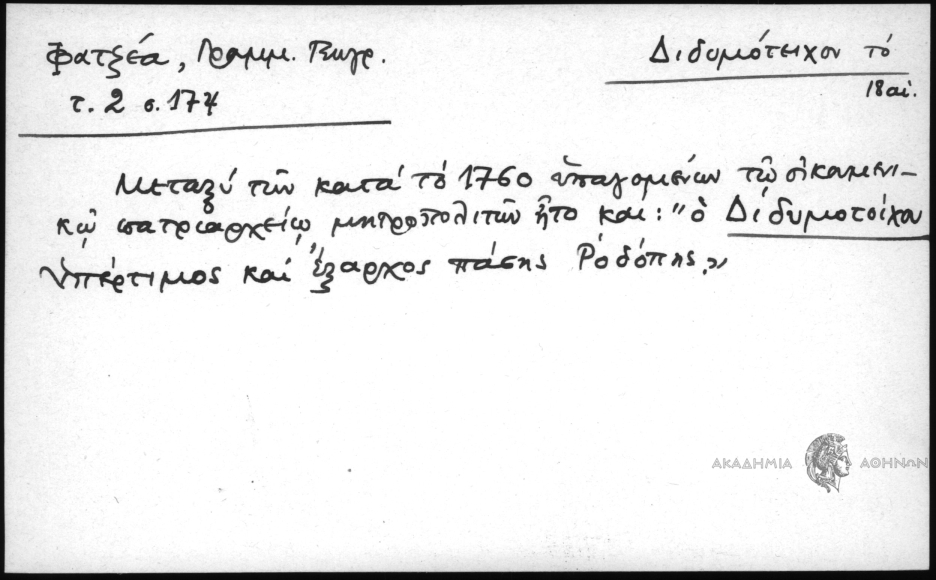 Φατζέα, Γραμμ. Γεωγρ.
τ. 2 σ. 174
Διδυμότειχον τό
18 αἰ.
Μεταξύ τῶν κατά τό 1760 ὑπαγομένων τῷ οἰκουμενι-
κῷ πατριαρχείῳ μητροπολιτῶν ἦτο και: "ὁ Διδυμοτοίχου
ὑπέρτιμος καί Ἔξαρχος πάσης Ροδόπης,,
ΑΚΑΔΗΜΙΑ ΑΘΗΝΩΝ